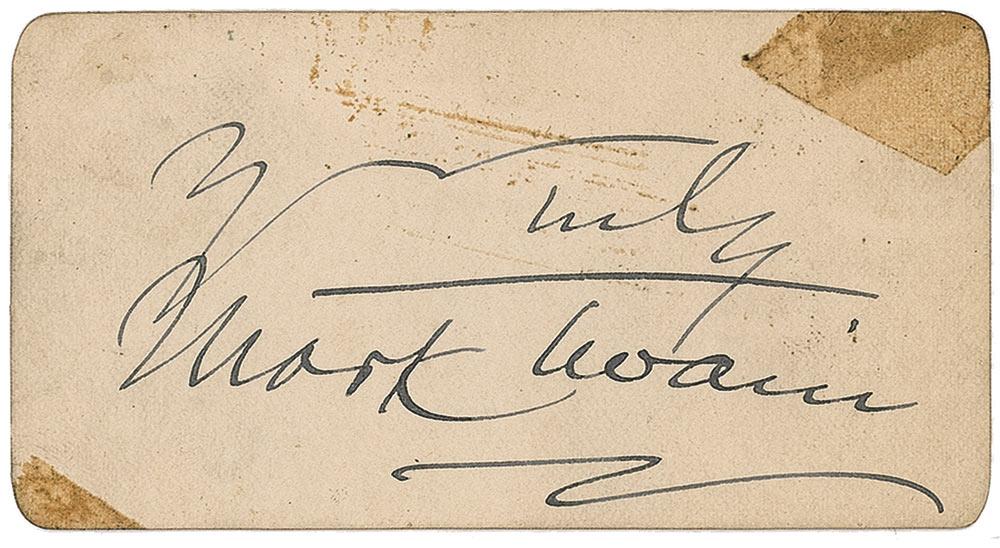 Y Truly
Mark Twain